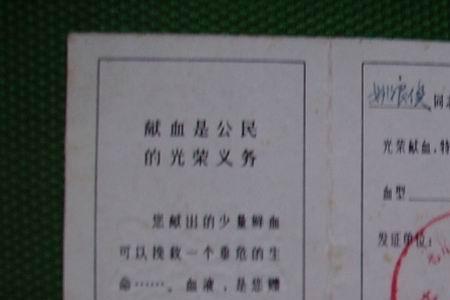 献血是公民
的光荣义务
您献出的少量鲜血
可以挽救一个垂危的生
命……。血液，是您赠
同志
光荣献血，特
血型
发证单位：